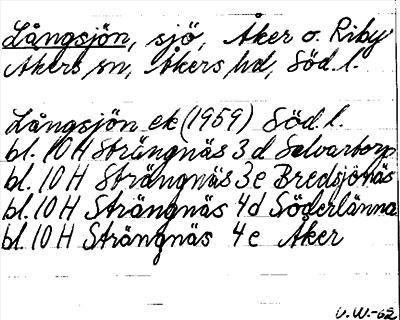 Långsjön, sjö, Åker o. Riby
Åkers sn, Åkers hd, Söd. l.
Långsjön ek (1959) Söd. l.
bl. 10 H Strängnäs 3 d Selvartorp
bl. 10 H Strängnäs 3 e Bredsjönäs
bl. 10 H Strängnäs 4 d Söderlänna
bl. 10 H Strängnäs 4 e Åker
U. W.-62